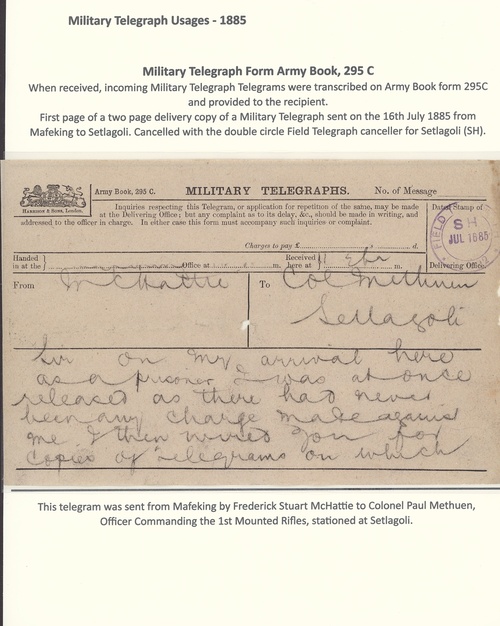 Military Telegraph Usages - 1885
Military Telegraph Form Army Book, 295 C
When received, incoming Military Telegraph Telegrams were transcribed on Army Book form 295C
and provided to the recipient.
First page of a two page delivery copy of a Military Telegraph sent on the 16th July 1885 from
Mafeking to Setlagoli. Cancelled with the double circle Field Telegraph canceller for Setlagoli (SH).
Harrison & Sons, London.
Army Book, 295 C.
MILITARY TELEGRAPHS.
No. of Message
Inquiries respecting this Telegram, or application for repetition of the same, may be made
at the Delivering Office; but any complaint as to its delay, &c., should be made in writing, and
addressed to the officer in charge. In either case this form must accompany such inquiries or complaint.
Dated Stamp of
FIELD
SH
JUL 1885
Delivering Office
Charges to pay £ s. d.
Handed
in at the Office at m.
Received
here at m.
From McHattie
To Col Methuen
Setlagoli
Sir on my arrival here
as a prisoner I was at once
released as there had never
been any charge made against
me I then wired you for
copies of telegrams on which
This telegram was sent from Mafeking by Frederick Stuart McHattie to Colonel Paul Methuen,
Officer Commanding the 1st Mounted Rifles, stationed at Setlagoli.